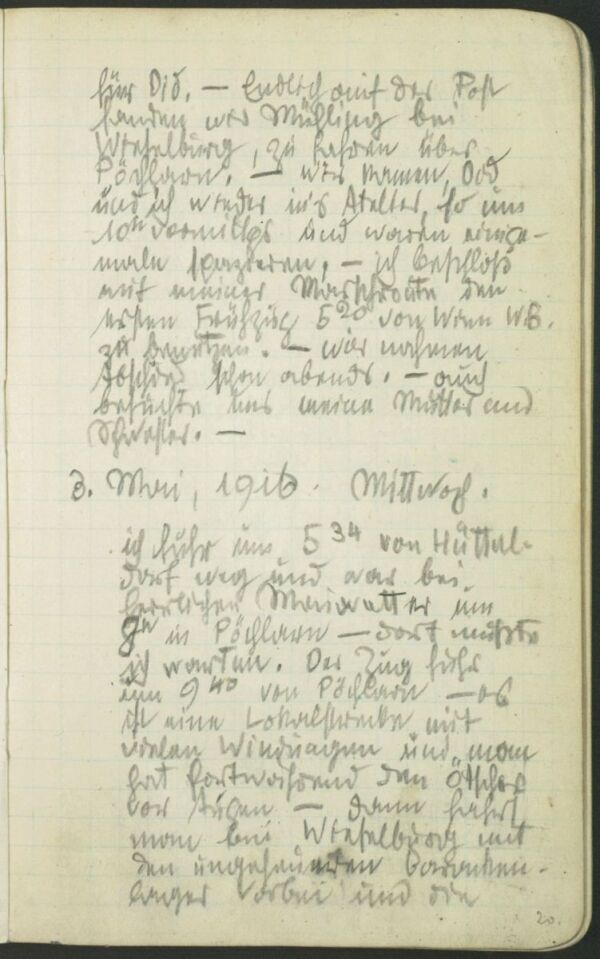 für Did. — Endlich auf der Post
fanden wir Mühling bei
Wieselburg, zu fahren über
Pöchlarn. — wir kamen, Did
und ich wieder ins Atelier, so um
10h vormittgs und waren einige-
male spazieren, — ich beschloß
mit meiner Marschroute den
ersten Frühzug 5 20 von Wien WB.
zu benutzen. — wir nahmen
Abschied schon abends. — auch
besuchte uns meine Mutter und
Schwester. —
3. Mai, 1916. Mittwoch.
ich fuhr um 5 34 von Hüttel-
dorf weg und war bei
herrlichen Maiwetter um
8h in Pöchlarn — dort mußte
ich warten. Der Zug fuhr
um 9 40 von Pöchlarn — es
ist eine Lokalstrecke mit
vielen Windungen und man
hat fortwährend den Ötscher
vor Augen — dann fährt
man bei Wieselburg mit
den ungeheueren Baracken-
lager vorbei und die
20.